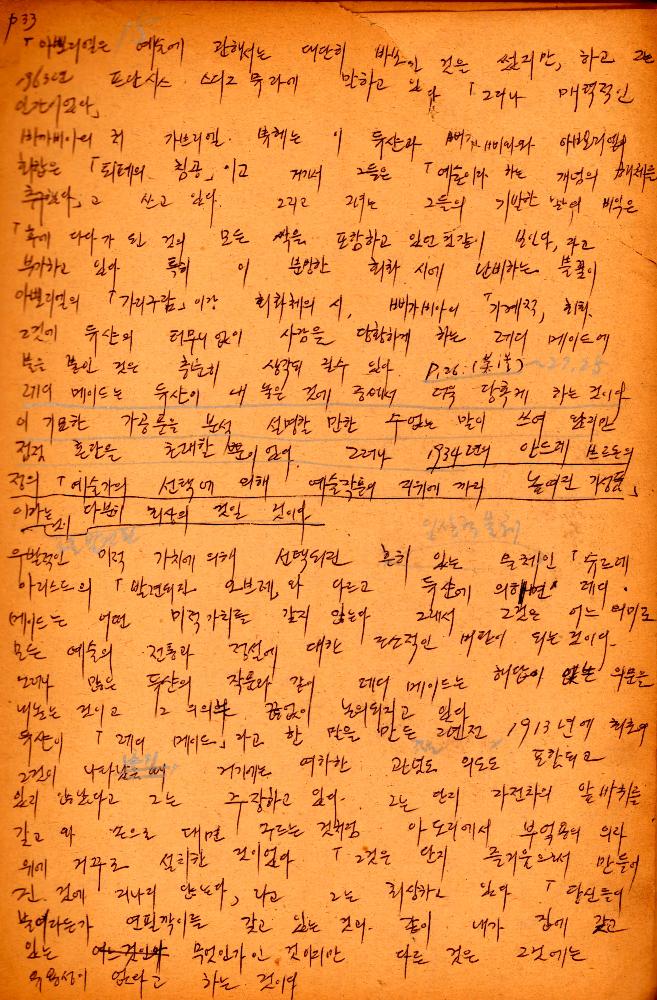 p33
「아뽀리넬은 예술에 관해서는 대단히 바보인 것은 썼지만, 하고 그는
1963년 프란시스 스티그뮤라에 말하고 있다 「그러나 매력적인
인간이었다」
삐카비아의 처 가브리엘. 뷔페는 이 듀샨과 삐카비아와 아뽀리넬의
회합은 「퇴폐의 침공」이고 거기서 그들은 「예술이라 하는 개념의 해체를
추구했다」고 쓰고 있다. 그리고 그녀는 그들의 기발한 날의 비약은
「후에 다다가 된 것의 모든 싹을 포함하고 있던 것같이 보인다, 라고
부가하고 있다 특히 이 분방한 회화 시에 난비하는 불꽃이
아뽀리넬의 「가리구람」이랑 회화체의 시, 삐까비아의 「기계적」 회화.
그것에 듀샨의 터무니없이 사람을 당황하게 하는 레디 메이드에
불을 붙인 것은 충분히 생각되 질수 있다 P.26.
레디 메이드는 듀샨이 내 놓은 것에 중에서 더욱 당혹케 하는 것이다
이 기묘한 가공물을 분석 설명할 만한 수없는 말이 쓰여 왔지만
점점 혼란을 초래할 뿐이었다. 그러나 1934년의 안드레 브르통의
정의 「예술가의 선택에 의해 예술작품의 지위에 까지 높여진 기성품」
이라는 것이 다분히 최상의 것일 것이다
우발적인 미적 가치에 의해 선택되린 흔히 있는 물체인 「슈르레
아리스트의 「발견되진 오브제」와 다르고 듀샨에 의하면 레디.
메이드는 어떤 미적가치를 갖지 않는다 그래서 그것은 어느 의미로
모든 예술의 전통과 정설에 대한 조소적인 비판이 되는 것이다.
그러나 많은 듀샨의 작품과 같이 레디 메이드는 해답이 없는 의문을
내놓는 것이고 그 의의는 끝없이 논의되지고 있다
듀샨이 「레디 메이드」라고 한 말을 만든 2년전 1913년에 최초의
그것이 나타났을 때 거기에는 여하한 관념도 의도도 포함되고
있지 않았다고 그는 주장하고 있다. 그는 단지 자전차의 앞바퀴를
갖고 와 손으로 대면 구르는 것처럼 아도리에서 부엌용의 의자
위에 거꾸로 설치한 것이었다 「그것은 단지 즐거움으로서 만들어
진 것에 지나지 않는다, 라고 그는 회상하고 있다 「당신들이
불이라든가 연필깎이를 갖고 있는 것의. 같이 내가 집에 갖고
있는 무엇인가인 것이지만 다른 것은 그것에는
유용성이 없다고 하는 것이다